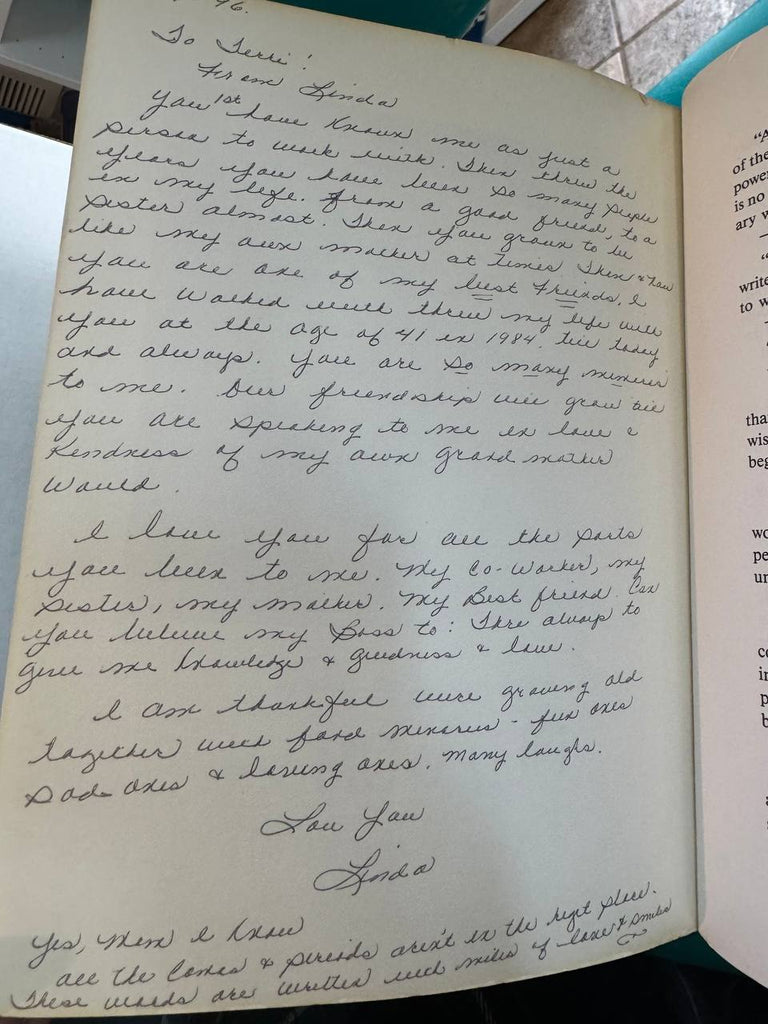 96.
To Terri!
From Linda
You 1st have known me as just a
person to work with. Then threw the
years you have been so many people
in my life. From a good friend, to a
sister almost. Then you grown to be
like my own mother at times. Then & now
you are one of my best friends. I
have walked with threw my life with
you at the age of 41 in 1984, till today
and always. You are so many
to me. Our friendship will grow till
you are speaking to me in love &
kindness of my own grand mother
would.
I love you for all the parts
you been to me. My Co-Worker, my
sister, my mother. My Best friend. Can
you believe my Boss to: There always to
give me knowledge & & love.
I am thankful were growing old
together with fond - fun ones
sad ones & loving ones. Many laughs.
Lou You
Linda
Yes, Mom I know
all the comas & periods aren't in the right place.
These words are written with miles of love & smiles
"A
of the
power
is no
ary w
"
write
to w
tha
wis
beg
wo
pe
un
co
in
p
b